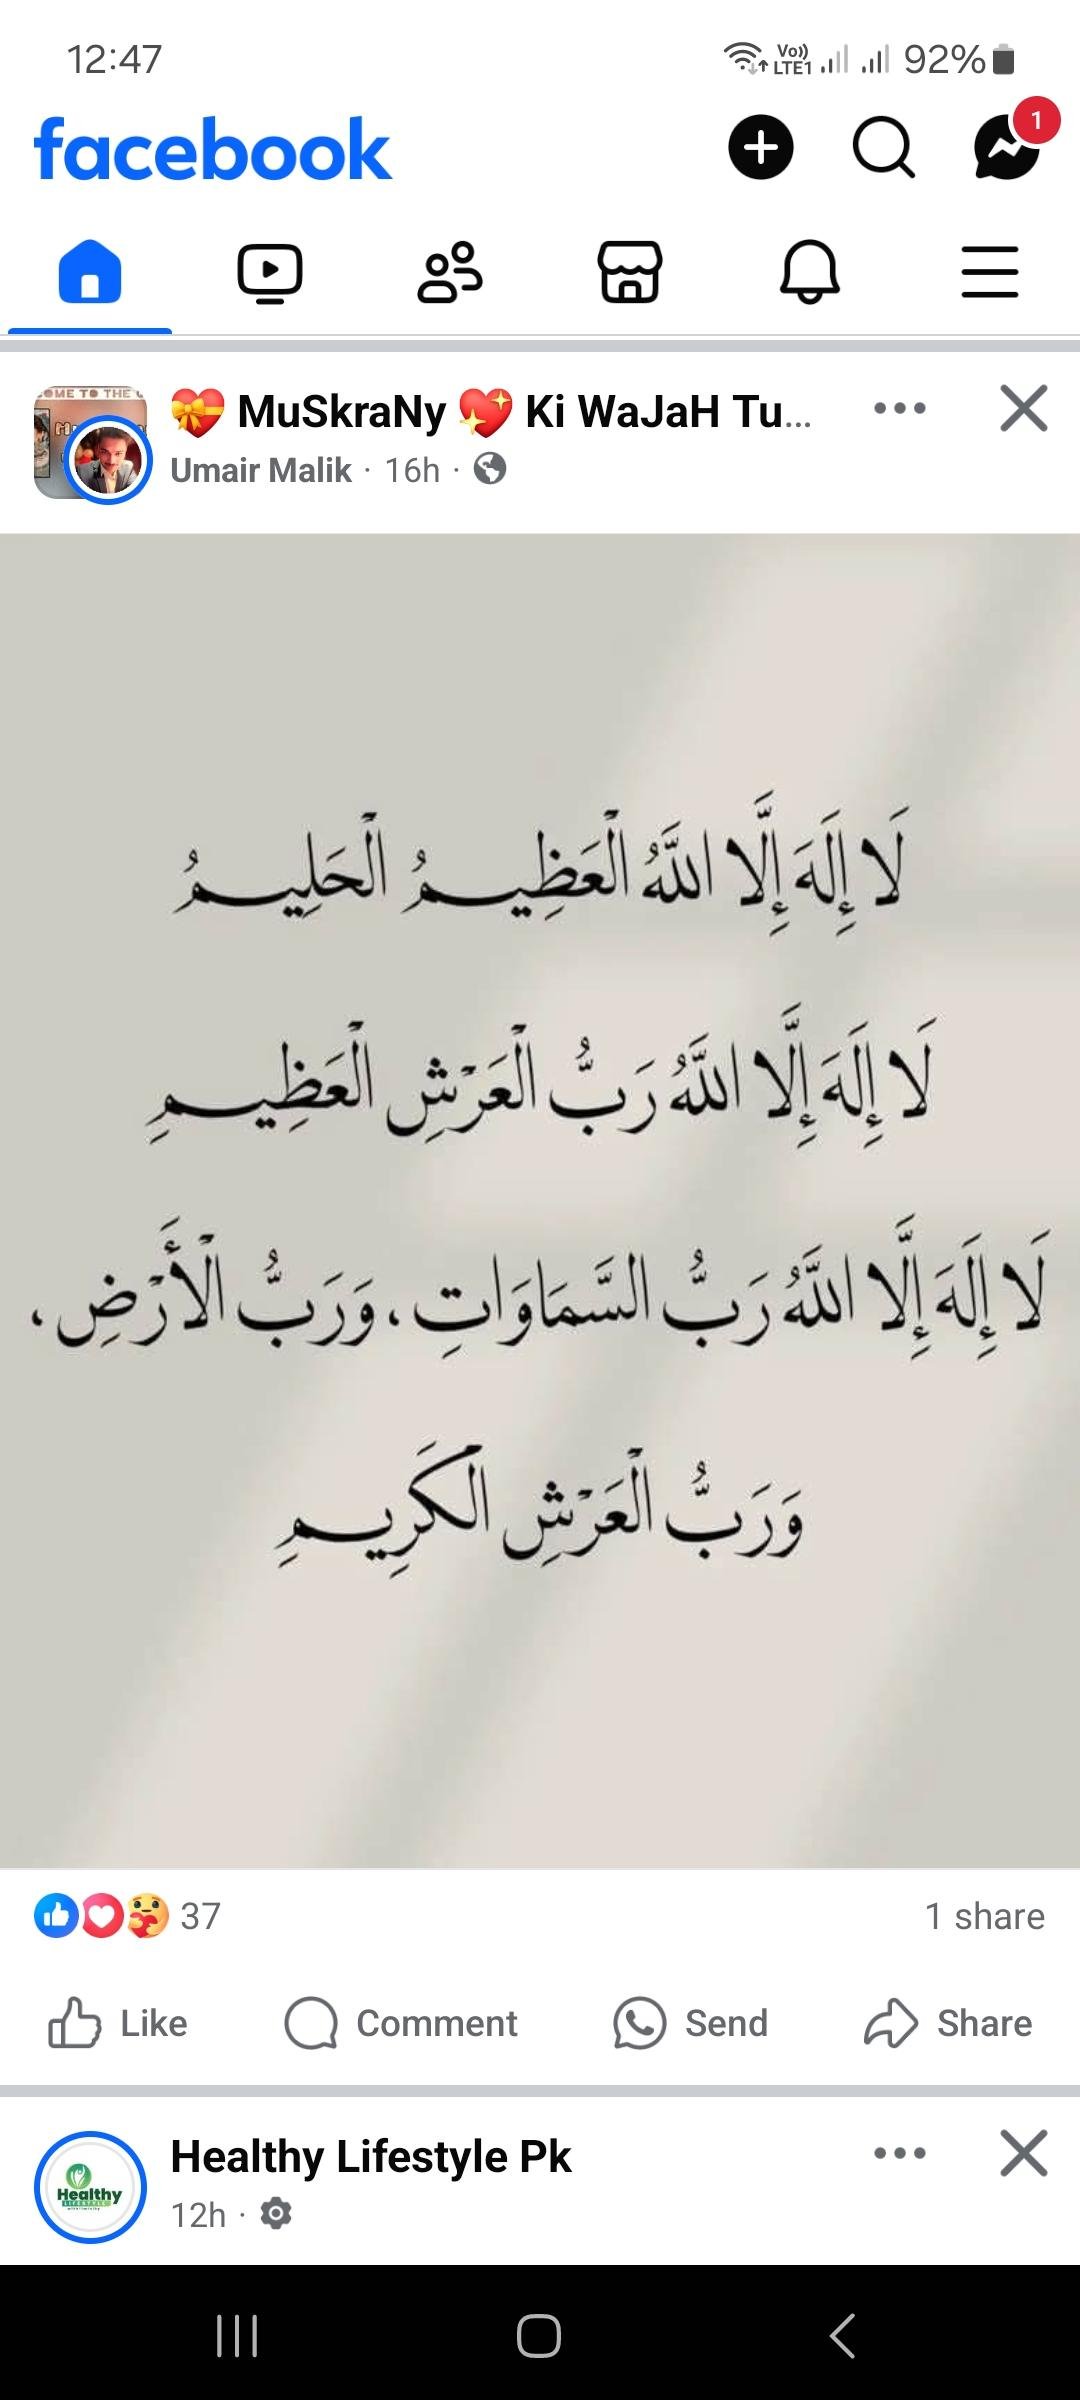 12:47
Vo)) LTE1 92%
facebook
1
OME TO THE
💝 MuSkraNy 💖 Ki WaJaH Tu...
Umair Malik · 16h ·
لَا إِلَهَ إِلَّا اللَّهُ الْعَظِيمُ الْحَلِيمُ
لَا إِلَهَ إِلَّا اللَّهُ رَبُّ الْعَرْشِ الْعَظِيمِ
لَا إِلَهَ إِلَّا اللَّهُ رَبُّ السَّمَاوَاتِ، وَرَبُّ الْأَرْضِ،
وَرَبُّ الْعَرْشِ الْكَرِيمِ
37 1 share
Like Comment Send Share
Healthy Lifestyle Pk
Healthy
LIFESTYLE
12h ·